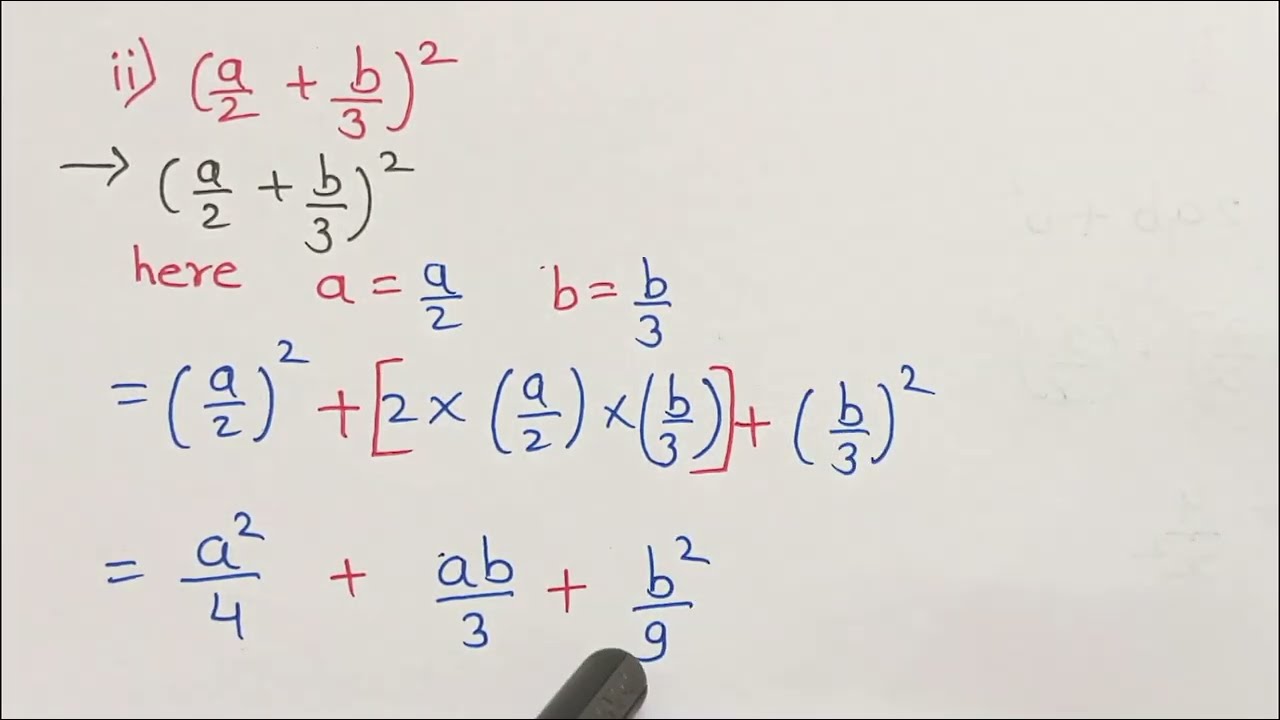 ii) (a/2 + b/3)²
→ (a/2 + b/3)²
here a = a/2 b = b/3
= (a/2)² + [2 × (a/2) × (b/3)] + (b/3)²
= a²/4 + ab/3 + b²/9